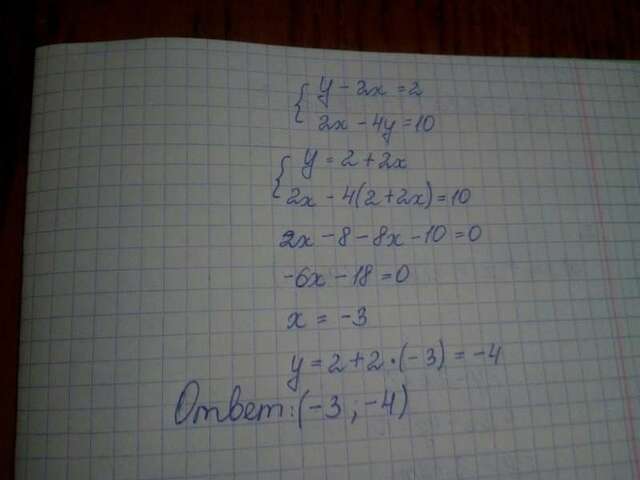 { y - 2x = 2
2x - 4y = 10
{ y = 2 + 2x
2x - 4(2 + 2x) = 10
2x - 8 - 8x - 10 = 0
-6x - 18 = 0
x = -3
y = 2 + 2 · (-3) = -4
Ответ: (-3 ; -4)